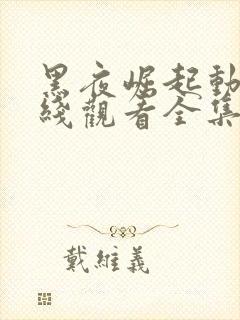 黑夜崛起動
綫觀看全集
戴維義